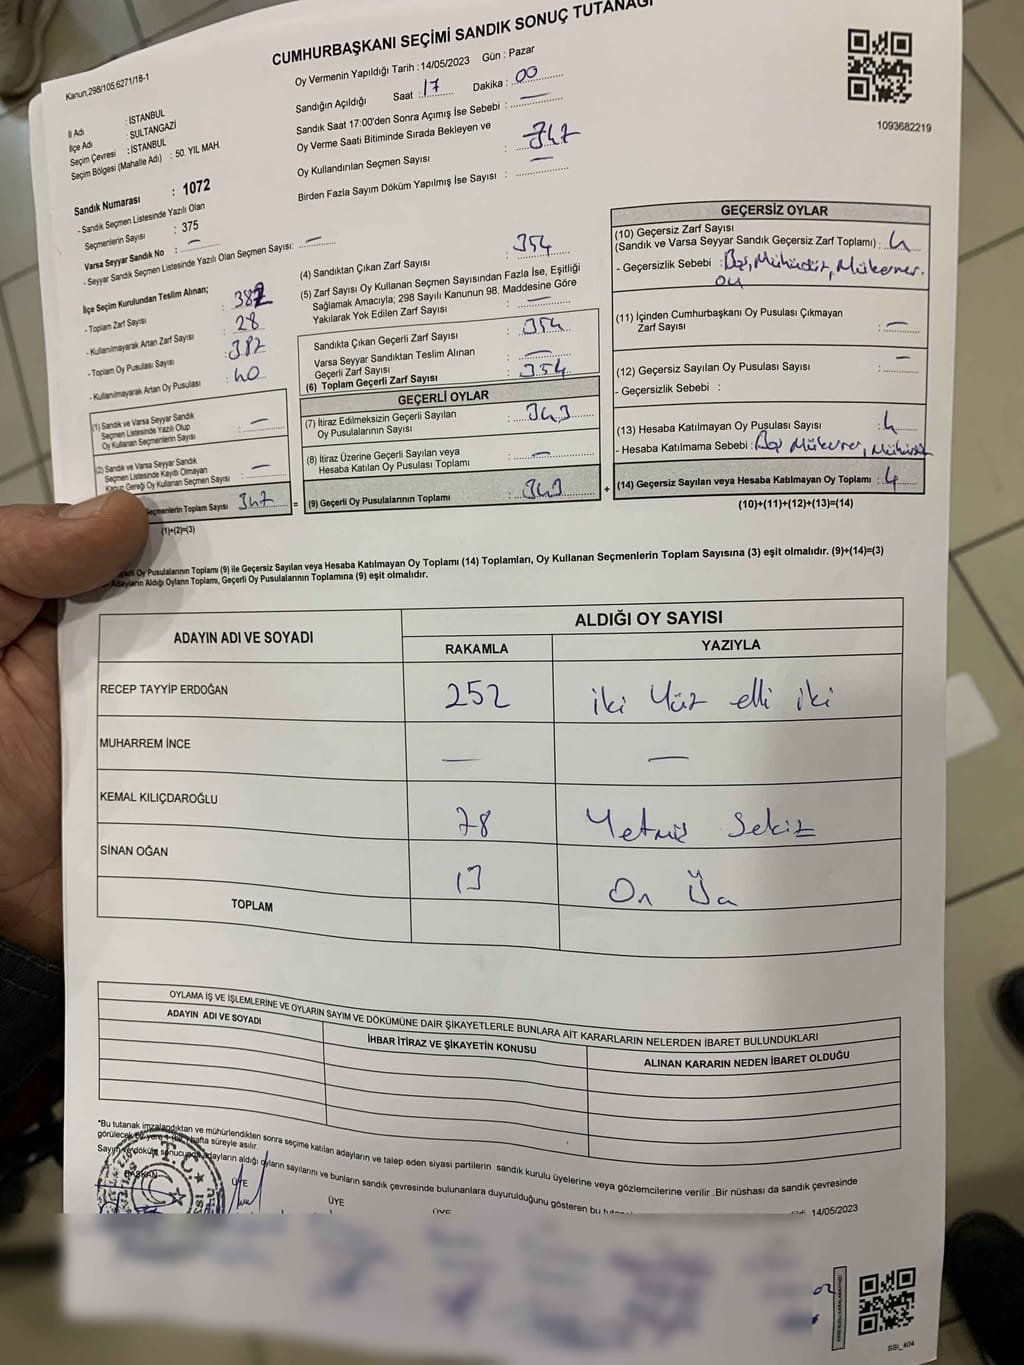 CUMHURBAŞKANI SEÇİMİ SANDIK SONUÇ TUTANAĞI
Kanun,298/105,6271/18-1
Oy Vermenin Yapıldığı Tarih : 14/05/2023 Gün : Pazar
Sandığın Açıldığı Saat : 17 Dakika : 00
Sandık Saat 17:00'den Sonra Açımış İse Sebebi : —
Oy Verme Saati Bitiminde Sırada Bekleyen ve
Oy Kullandırılan Seçmen Sayısı : 347
Birden Fazla Sayım Döküm Yapılmış İse Sayısı : —
1093682219
İl Adı : İSTANBUL
İlçe Adı : SULTANGAZİ
Seçim Çevresi : İSTANBUL
Seçim Bölgesi (Mahalle Adı) : 50. YIL MAH.
Sandık Numarası : 1072
- Sandık Seçmen Listesinde Yazılı Olan
Seçmenlerin Sayısı : 375
Varsa Seyyar Sandık No : —
- Seyyar Sandık Seçmen Listesinde Yazılı Olan Seçmen Sayısı: —
İlçe Seçim Kurulundan Teslim Alınan;
- Toplam Zarf Sayısı : 382
- Kullanılmayarak Artan Zarf Sayısı : 28
- Toplam Oy Pusulası Sayısı : 382
- Kullanılmayarak Artan Oy Pusulası : 40
(1) Sandık ve Varsa Seyyar Sandık
Seçmen Listesinde Yazılı Olup
Oy Kullanan Seçmenlerin Sayısı : —
(2) Sandık ve Varsa Seyyar Sandık
Seçmen Listesinde Kayıtlı Olmayan
Kanun Gereği Oy Kullanan Seçmen Sayısı : —
Seçmenlerin Toplam Sayısı 347 =
(1)+(2)=(3)
(4) Sandıktan Çıkan Zarf Sayısı : 354
(5) Zarf Sayısı Oy Kullanan Seçmen Sayısından Fazla İse, Eşitliği
Sağlamak Amacıyla; 298 Sayılı Kanunun 98. Maddesine Göre
Yakılarak Yok Edilen Zarf Sayısı : —
Sandıkta Çıkan Geçerli Zarf Sayısı : 354
Varsa Seyyar Sandıktan Teslim Alınan
Geçerli Zarf Sayısı : —
(6) Toplam Geçerli Zarf Sayısı : 354
GEÇERLİ OYLAR
(7) İtiraz Edilmeksizin Geçerli Sayılan
Oy Pusulalarının Sayısı : 343
(8) İtiraz Üzerine Geçerli Sayılan veya
Hesaba Katılan Oy Pusulası Toplamı : —
(9) Geçerli Oy Pusulalarının Toplamı : 343 +
GEÇERSİZ OYLAR
(10) Geçersiz Zarf Sayısı
(Sandık ve Varsa Seyyar Sandık Geçersiz Zarf Toplamı) : 4
- Geçersizlik Sebebi : Boş, Mühürsüz, Mükerrer.
oy
(11) İçinden Cumhurbaşkanı Oy Pusulası Çıkmayan
Zarf Sayısı : —
(12) Geçersiz Sayılan Oy Pusulası Sayısı : —
- Geçersizlik Sebebi :
(13) Hesaba Katılmayan Oy Pusulası Sayısı : 4
- Hesaba Katılmama Sebebi : Boş Mükerrer, Mühürsüz
(14) Geçersiz Sayılan veya Hesaba Katılmayan Oy Toplamı : 4
(10)+(11)+(12)+(13)=(14)
Oy Pusulalarının Toplamı (9) ile Geçersiz Sayılan veya Hesaba Katılmayan Oy Toplamı (14) Toplamları, Oy Kullanan Seçmenlerin Toplam Sayısına (3) eşit olmalıdır. (9)+(14)=(3)
Adayların Aldığı Oyların Toplamı, Geçerli Oy Pusulalarının Toplamına (9) eşit olmalıdır.
ADAYIN ADI VE SOYADI
ALDIĞI OY SAYISI
RAKAMLA YAZIYLA
RECEP TAYYİP ERDOĞAN 252 iki Yüz elli iki
MUHARREM İNCE — —
KEMAL KILIÇDAROĞLU 78 Yetmiş Sekiz
SİNAN OĞAN 13 On Üç
TOPLAM
OYLAMA İŞ VE İŞLEMLERİNE VE OYLARIN SAYIM VE DÖKÜMÜNE DAİR ŞİKAYETLERLE BUNLARA AİT KARARLARIN NELERDEN İBARET BULUNDUKLARI
ADAYIN ADI VE SOYADI İHBAR İTİRAZ VE ŞİKAYETİN KONUSU ALINAN KARARIN NEDEN İBARET OLDUĞU
*Bu tutanak imzalandıktan ve mühürlendikten sonra seçime katılan adayların ve talep eden siyasi partilerin sandık kurulu üyelerine veya gözlemcilerine verilir .Bir nüshası da sandık çevresinde
görülecek bir yere 1 (bir) hafta süreyle asılır.
Sayım ve döküm sonucunda adayların aldığı oyların sayılarını ve bunların sandık çevresinde bulunanlara duyurulduğunu gösteren bu
14/05/2023
T.C.
BAŞKAN ÜYE ÜYE ÜYE
SSI_404